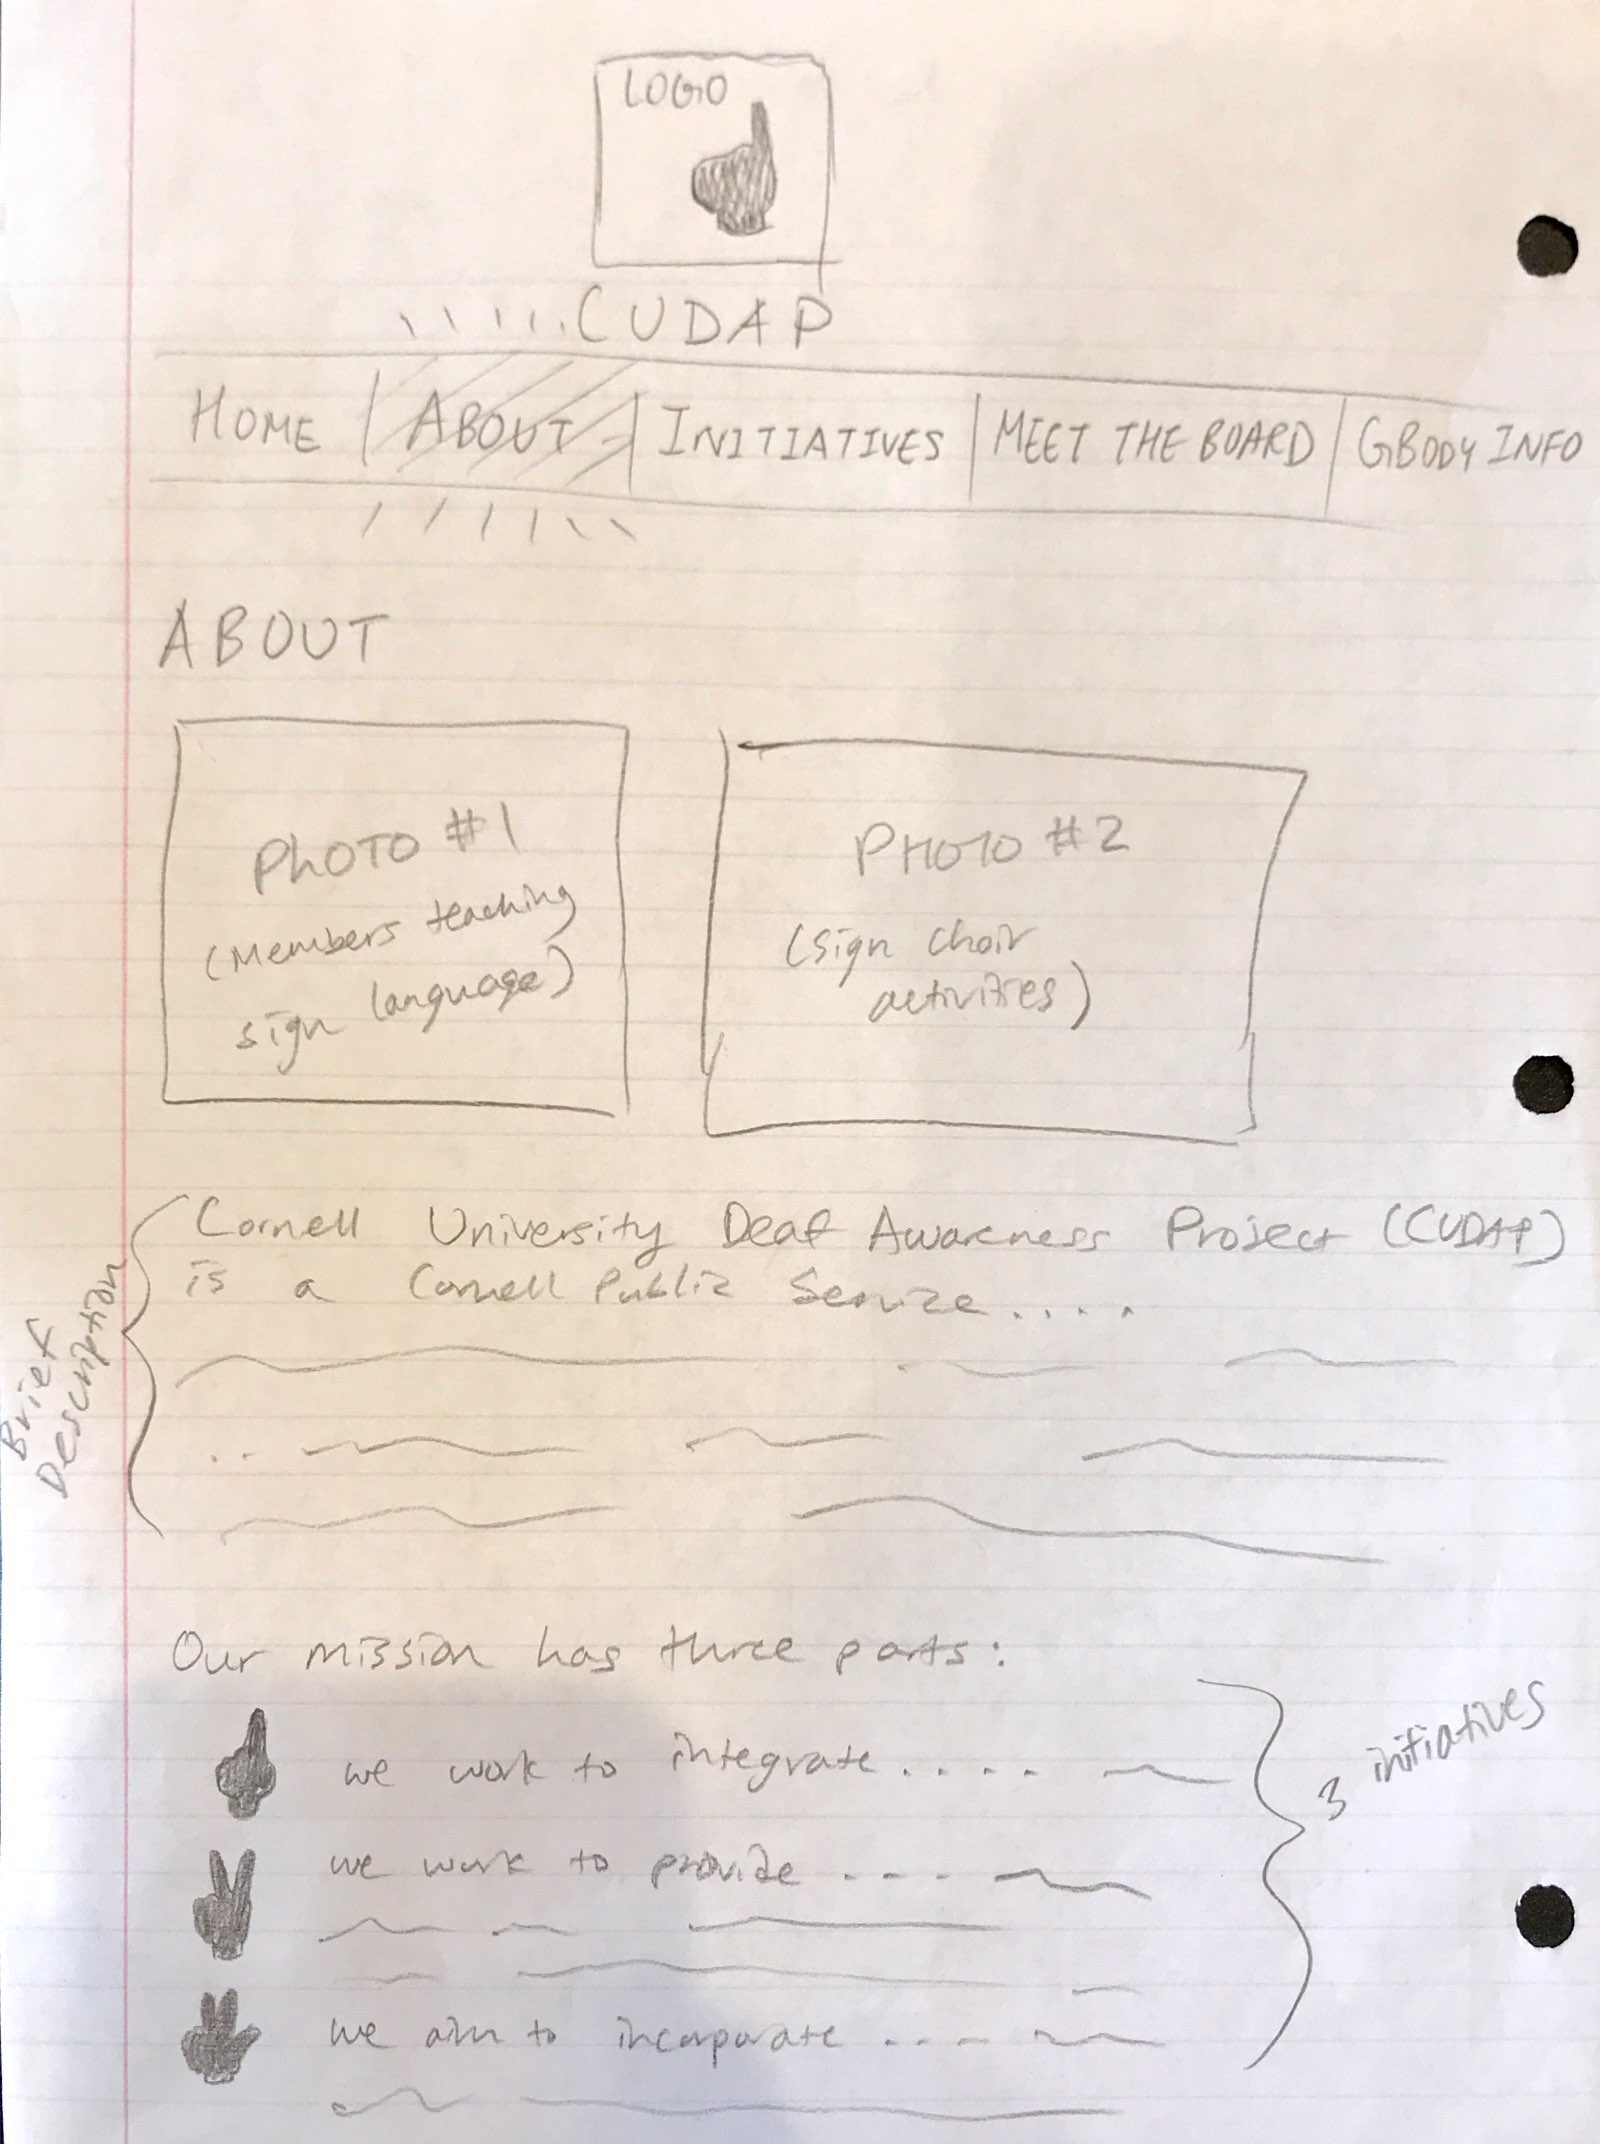 LOGO
CUDAP
HOME | ABOUT | INITIATIVES | MEET THE BOARD | GBODY INFO
ABOUT
PHOTO #1
(Members teaching
sign language)
PHOTO #2
(sign choir
activities)
Brief
Description
Cornell University Deaf Awareness Project (CUDAP)
is a Cornell Public Service....
Our mission has three parts:
we work to integrate....
we work to provide ....
we aim to incorporate ....
3 initiatives